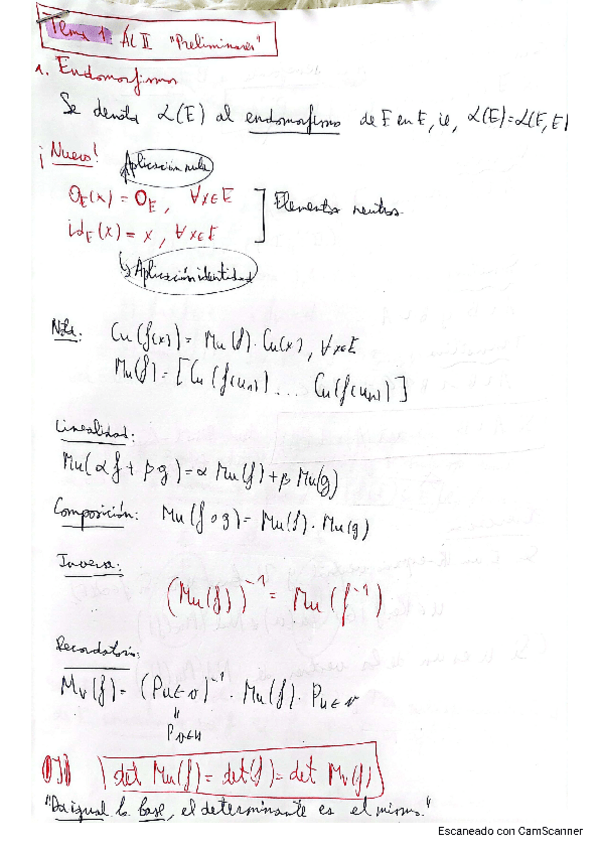 Tema 1: AL II "Preliminares"
1. Endomorfismos
Se denota 𝓛(E) al endomorfismo de E en E, ie, 𝓛(E)=𝓛(E,E)
¡Nuevo! Aplicación nula
O_E(x) = O_E, ∀x∈E
Elementos neutros.
id_E(x) = x, ∀x∈E
↳ Aplicación identidad
Nota: Cu(f(x)) = Mu(f)·Cu(x), ∀x∈E
Mu(f) = [Cu(f(u₁)) ... Cu(f(uₙ))]
Linealidad:
Mu(αf + βg) = α Mu(f) + β Mu(g)
Composición: Mu(f∘g) = Mu(f)·Mu(g)
Inversa:
(Mu(f))⁻¹ = Mu(f⁻¹)
Recordatorio:
Mv(f) = (Pu←v)⁻¹ · Mu(f) · Pu←v
"
Pv←u
det Mu(f) = det(f) = det Mv(f)
"Da igual la base, el determinante es el mismo."
Escaneado con CamScanner